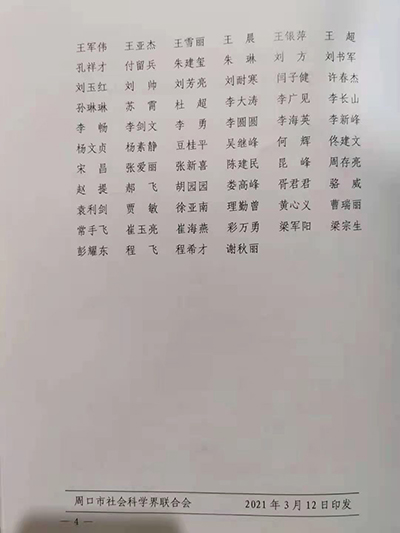 王军伟 王亚杰 王雪丽 王 晨 王银萍 王 超
孔祥才 付留兵 朱建玺 朱 琳 刘 方 刘书军
刘玉红 刘 帅 刘芳亮 刘耐寒 闫子健 许春杰
孙琳琳 苏 霄 杜 超 李大涛 李广见 李长山
李 畅 李剑文 李 勇 李圆圆 李海英 李新峰
杨文贞 杨素静 豆桂平 吴继峰 何 辉 佟建文
宋 昌 张爱丽 张新喜 陈建民 昆 峰 周存亮
赵 提 郝 飞 胡园园 娄高峰 胥君君 骆 威
袁利剑 贾 敏 徐亚南 理勤曾 黄心义 曹瑞丽
常手飞 崔玉亮 崔海燕 彩万勇 梁军阳 梁宗生
彭耀东 程 飞 程希才 谢秋丽
周口市社会科学界联合会 2021 年 3 月 12 日印发
— 4 —